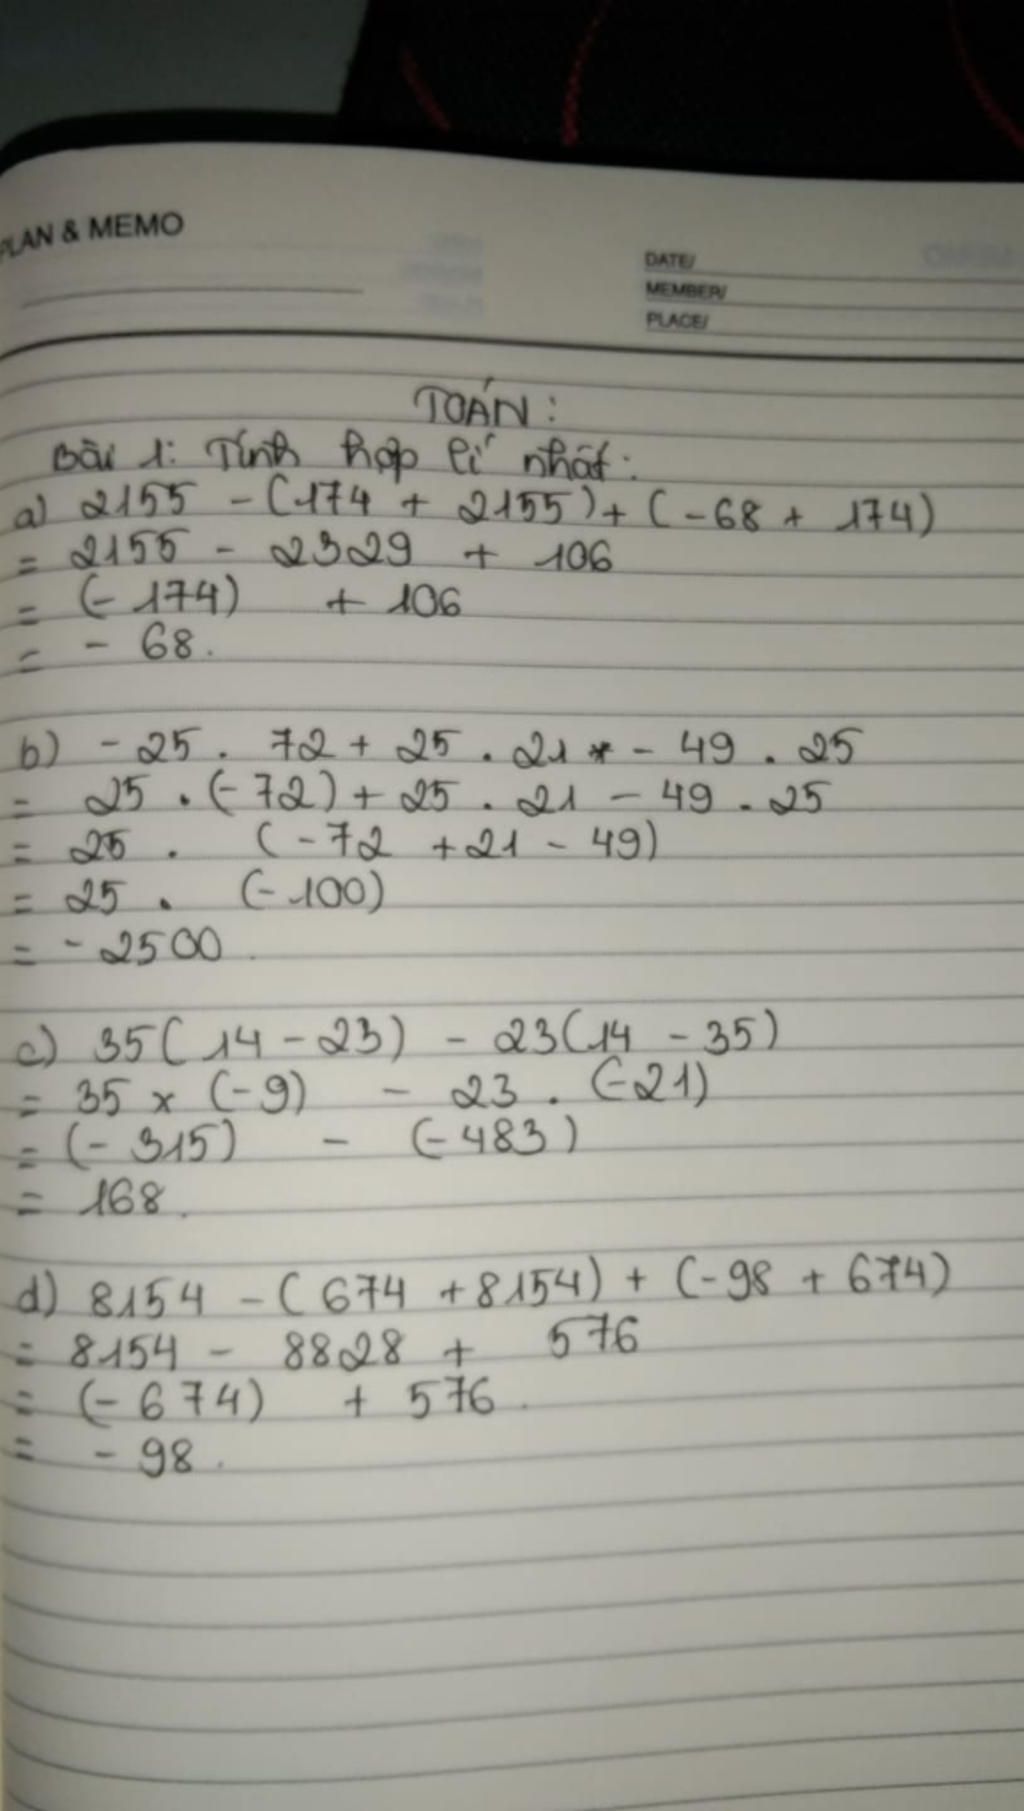 PLAN & MEMO
DATE/
MEMBER/
PLACE/
TOÁN:
Bài 1: Tính hợp lí nhất:
a) 2155 - (174 + 2155) + (-68 + 174)
= 2155 - 2329 + 106
= (-174) + 106
= - 68.
b) - 25 . 72 + 25 . 21 - 49 . 25
= 25 . (-72) + 25 . 21 - 49 . 25
= 25 . (-72 + 21 - 49)
= 25 . (-100)
= - 2500.
c) 35(14 - 23) - 23(14 - 35)
= 35 x (-9) - 23 . (-21)
= (-315) - (-483)
= 168.
d) 8154 - (674 + 8154) + (-98 + 674)
= 8154 - 8828 + 576
= (-674) + 576.
= - 98.